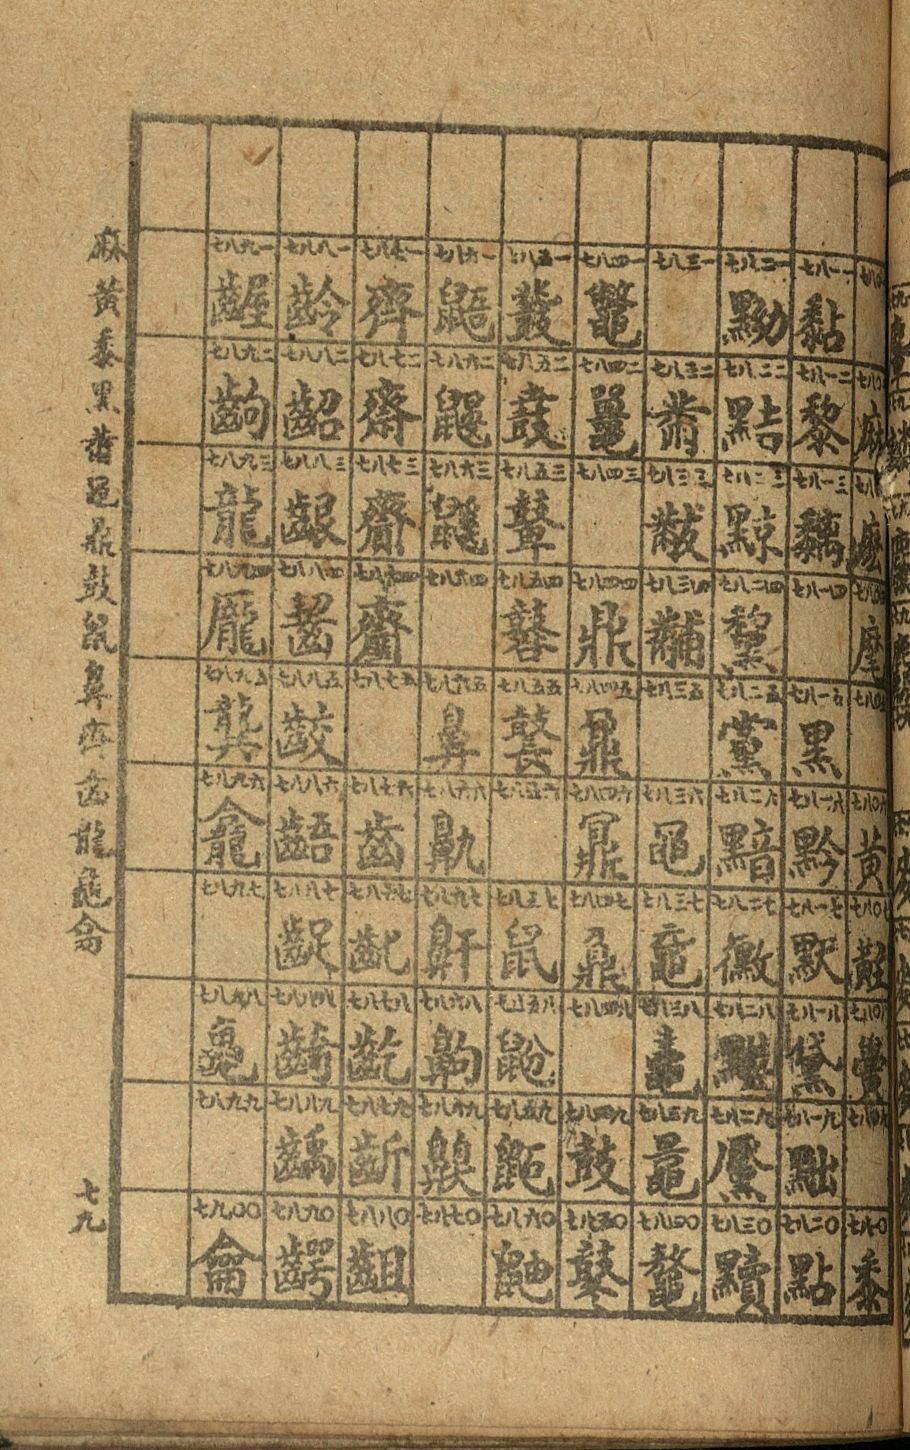 麻黃黍黑黹黽鼎鼓鼠鼻齊齒龍龜龠
七九
七八〇
七八〇 麻
七八〇 麼
七八〇 麾
七八〇
七八〇六 黃
七八〇七 黈
七八〇八 黌
七八〇九
七八一〇 黍
七八一一 黏
七八一二 黎
七八一三 黐
七八一四
七八一五 黑
七八一六 黔
七八一七 默
七八一八 黛
七八一九 黜
七八二〇 點
七八二一 黝
七八二二 黠
七八二三 黥
七八二四 黧
七八二五 黨
七八二六 黯
七八二七 黴
七八二八
七八二九 黶
七八三〇 黷
七八三一
七八三二 黹
七八三三 黻
七八三四 黼
七八三五
七八三六 黽
七八三七 黿
七八三八 鼃
七八三九 鼂
七八四〇 鼇
七八四一 鼈
七八四二 鼉
七八四三
七八四四 鼎
七八四五 鼐
七八四六 鼏
七八四七 鼒
七八四八
七八四九 鼓
七八五〇 鼕
七八五一
七八五二 鼖
七八五三 鼙
七八五四 鼛
七八五五 鼚
七八五六
七八五七 鼠
七八五八 鼢
七八五九 鼧
七八六〇 鼬
七八六一 鼯
七八六二 鼴
七八六三 鼷
七八六四
七八六五 鼻
七八六六 鼽
七八六七 鼾
七八六八 齁
七八六九 齅
七八七〇
七八七一 齊
七八七二 齋
七八七三 齎
七八七四 齏
七八七五
七八七六 齒
七八七七 齔
七八七八 齕
七八七九 齗
七八八〇 齟
七八八一 齡
七八八二 齠
七八八三 齦
七八八四 齧
七八八五 齩
七八八六 齬
七八八七 齪
七八八八 齮
七八八九 齲
七八九〇 齶
七八九一 齷
七八九二 齣
七八九三 龍
七八九四 龐
七八九五 龔
七八九六 龕
七八九七
七八九八 龜
七八九九
七九〇〇 龠